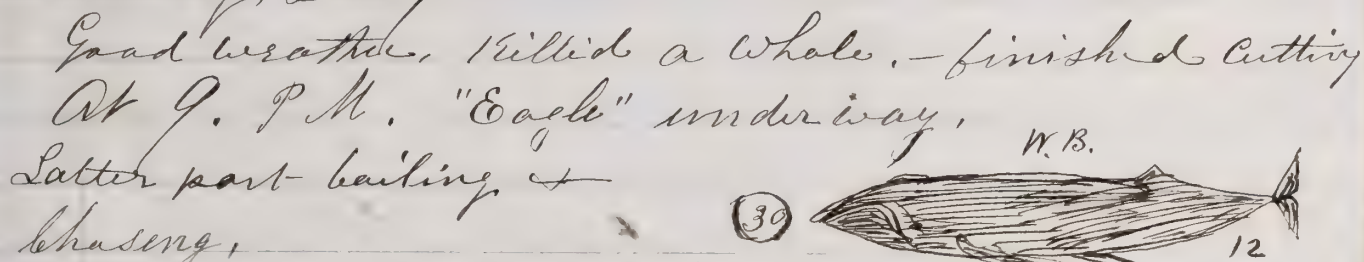 Good weather. Killed a Whale. - finished Cutting
At 9. P.M. "Eagle" underway.
W.B.
Latter part boiling +
30
Chasing.
12